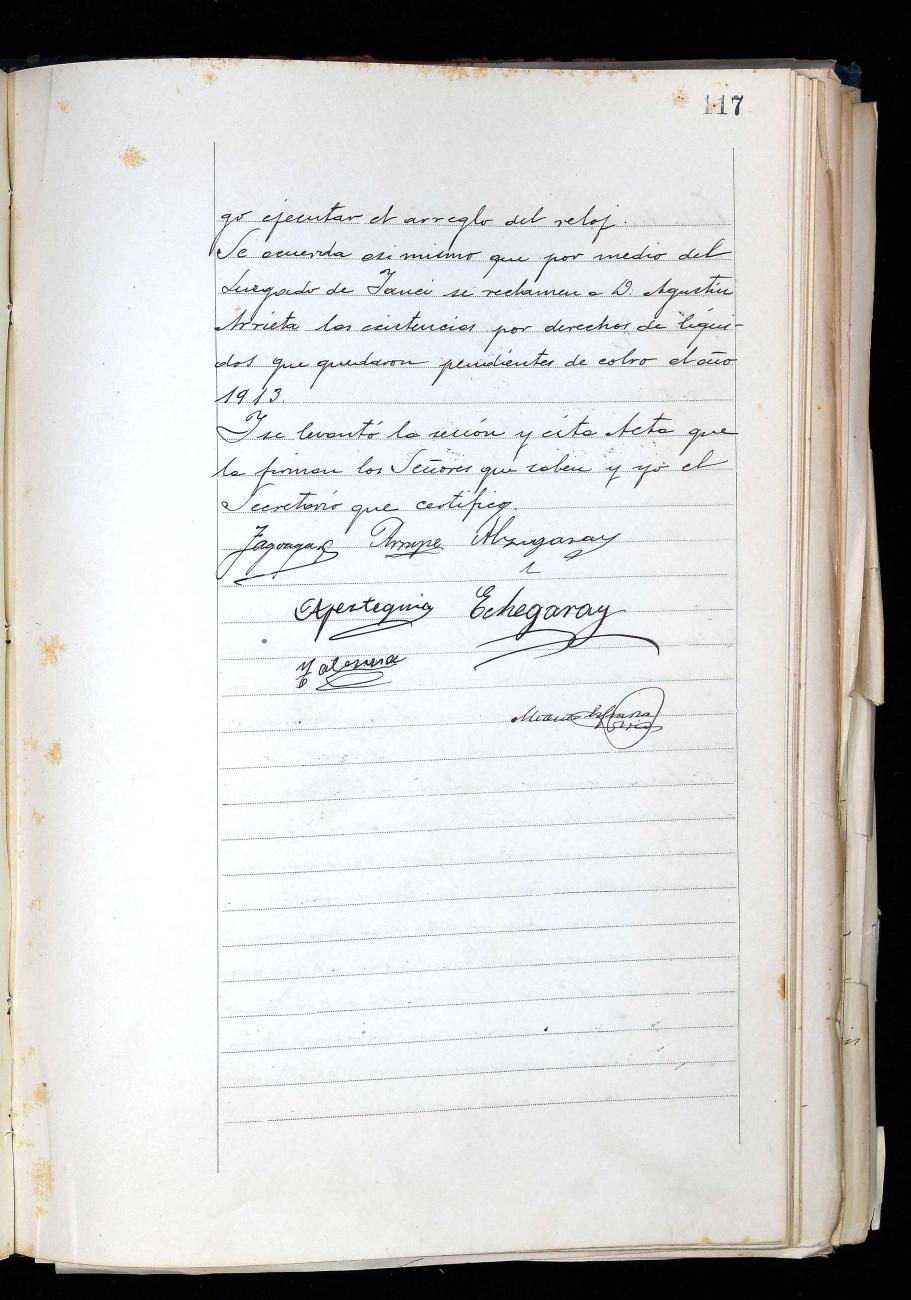 117
go ejecutar el arreglo del reloj.
Se acuerda asi mismo que por medio del
Juzgado de Yanci se reclamen a D. Agustin
Arrieta las existencias por derechos de liqui-
dos que quedaron pendientes de cobro el año
1913.
Y se levantó la sesión y esta Acta que
la firman los Señores que saben y yo el
Secretario que certifico.
Jagoaga Arrupe Alzugaray
Apezteguia Echegaray